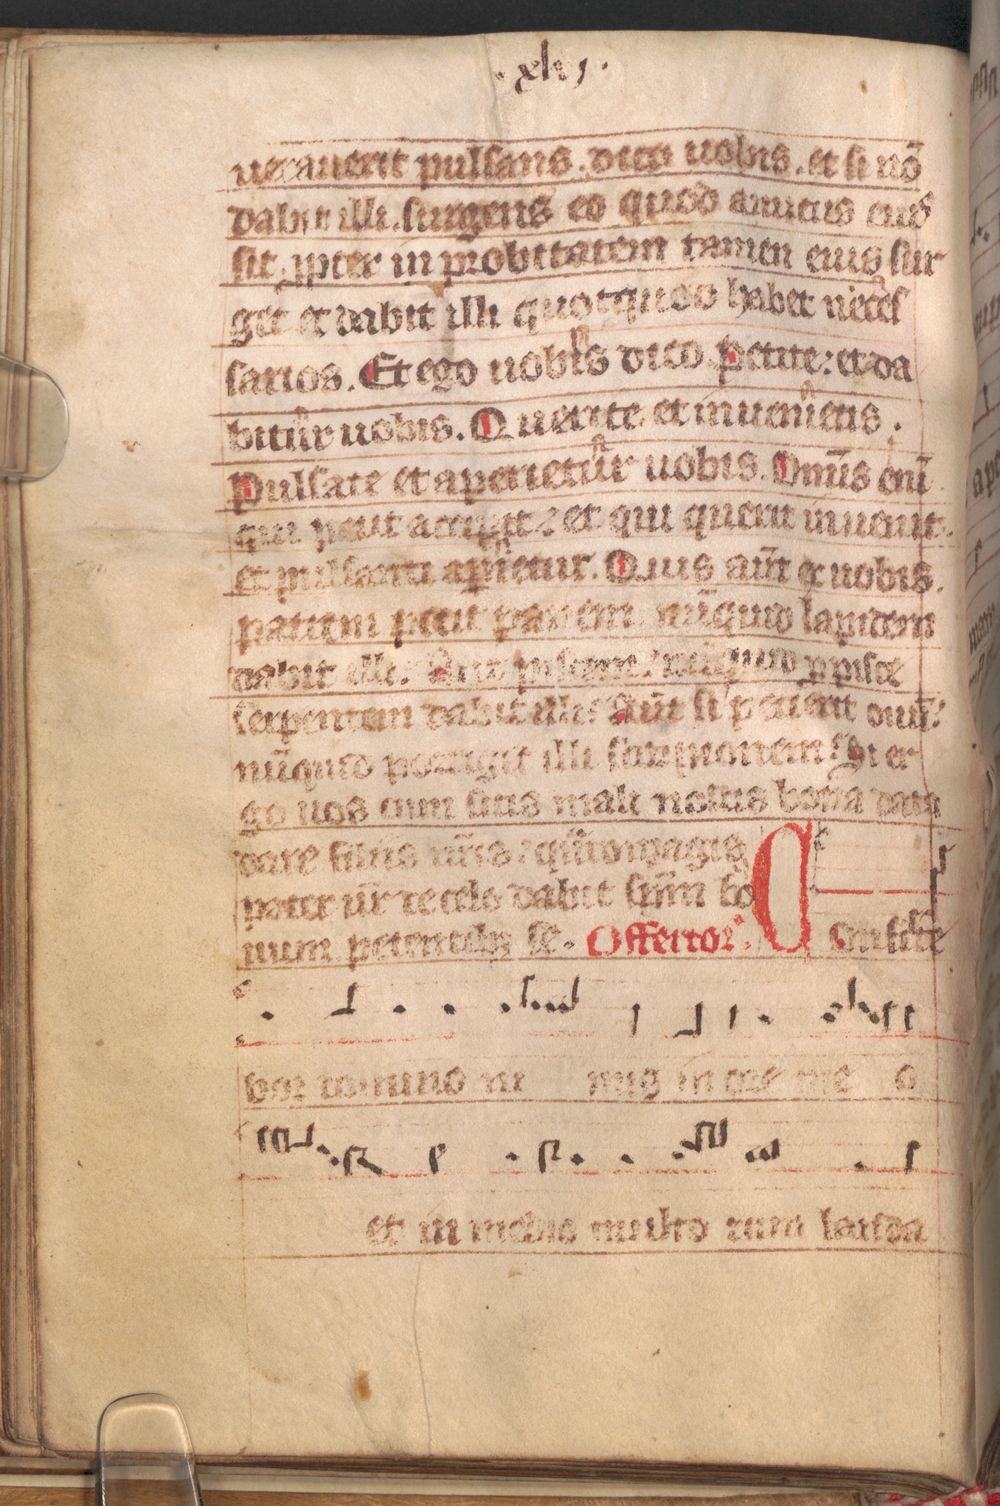 ·xlij·
uerauerit pulsans. dico uobis. et si nō
dabit illi. surgens eo quod amicus eius
sit. ꝓpter inprobitatem tamen eius sur
get et dabit illi quotquod habet neces
sarios. Et ego uobis dico. Petite: et da
bitur uobis. Querite et inuenietis.
Pulsate et aperietur uobis. Omīs enī
qui petit accipit: et qui querit inuenit.
et pulsanti aperietur. Quis aūt ex uobis.
patrem petit panem. nūquid lapidem
dabit illi? Aut piscem: nūquid ꝓ pisce
serpentem dabit illi? Aūt si petierit ouū:
nūquid porriget illi scorpionem? Si er
go uos cum sitis mali nostis bona data
dare filiis urīs: quāto magis
pater ur̄ de celo dabit spm̄ bo
num petentibꝫ se. Offertor̄.
Confite
bor domino ni mis in ore me o
et in medio multo rum lauda